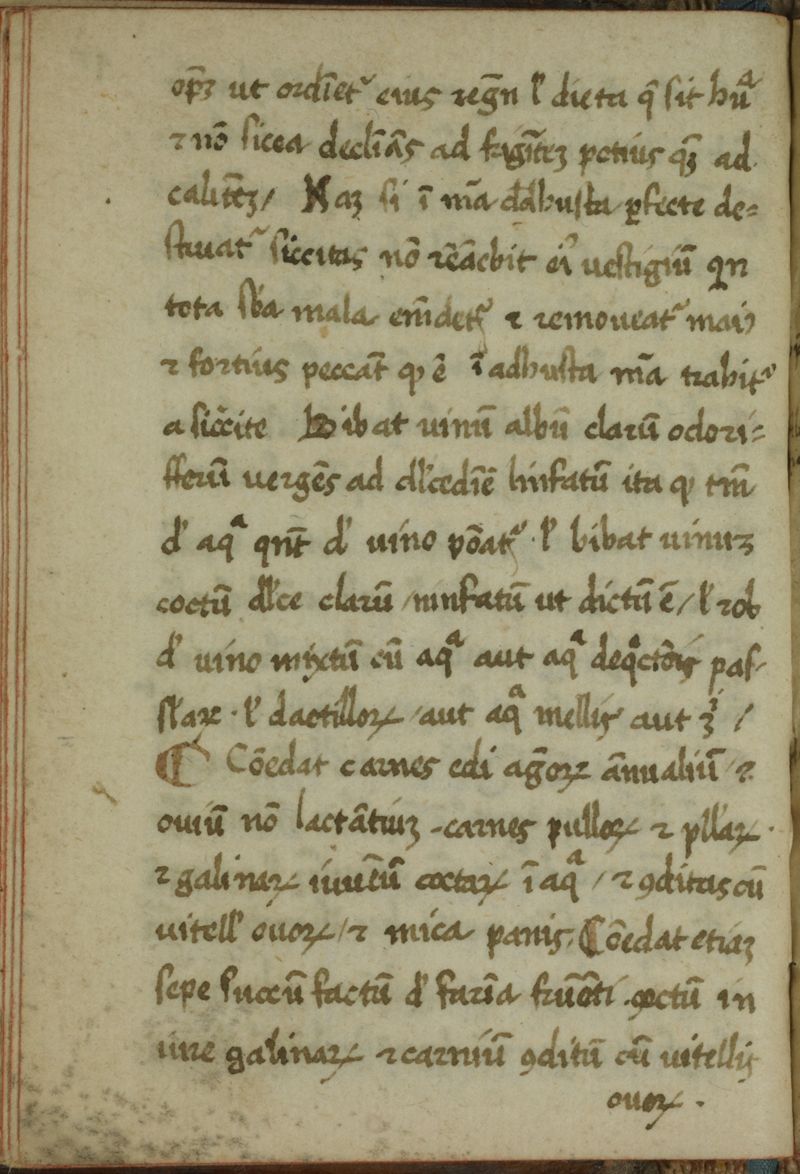 opꝫ ut ordīet᷑ eius regn̄ l̓ dieta q̄ sit hūa
⁊ nō sicca declīās ad frig̃itẽꝫ potius qꝫ ad
calitẽꝫ / Naꝫ si ĩ mā adhusta ꝑfecte de=
struat᷑ siccitas nō remãebit ei᷑ uestigiū qn
tota sb̃a mala emẽdet᷑ ⁊ remoueat᷑ mai᷑
⁊ fortius peccãt ꝙ ē ĩ adhusta mā trahit᷑
a siccite Bibat uinū albū clarū odori=
fferū uergẽs ad dl̓cedīẽ linfatū ita ꝙ tm̄
d̓ aqᵃ qn̄t d̓ uino põat᷑ · l̓ bibat uinuꝫ
coctū dl̓ce clarū ninfatū ut dictū ē / l̓ rob
d̓ uino mixtū cū aqᵃ aut aqᵃ deqͦctõis pas-
sl̓aꝝ · l̓ dactilloꝝ aut aqᵃ mellis aut ʒ̃ /
¶ Cõedat carnes edi agñoꝝ ãnualiū ⁊
ouiū nō lactãtiuꝫ carnes pulloꝝ ⁊ pll̓aꝝ ·
⁊ galinaꝝ iuuẽū coctaꝝ ĩ aqᵃ / ⁊ ꝯditas cū
uitell̓ ouoꝝ / ⁊ mica panis. Cõedat etiaꝫ
sepe succū factū d̓ farĩa frum̃ẽti coctū in
iure galinaꝝ ⁊ carniū ꝯditū cū uitellis
ouoꝝ .